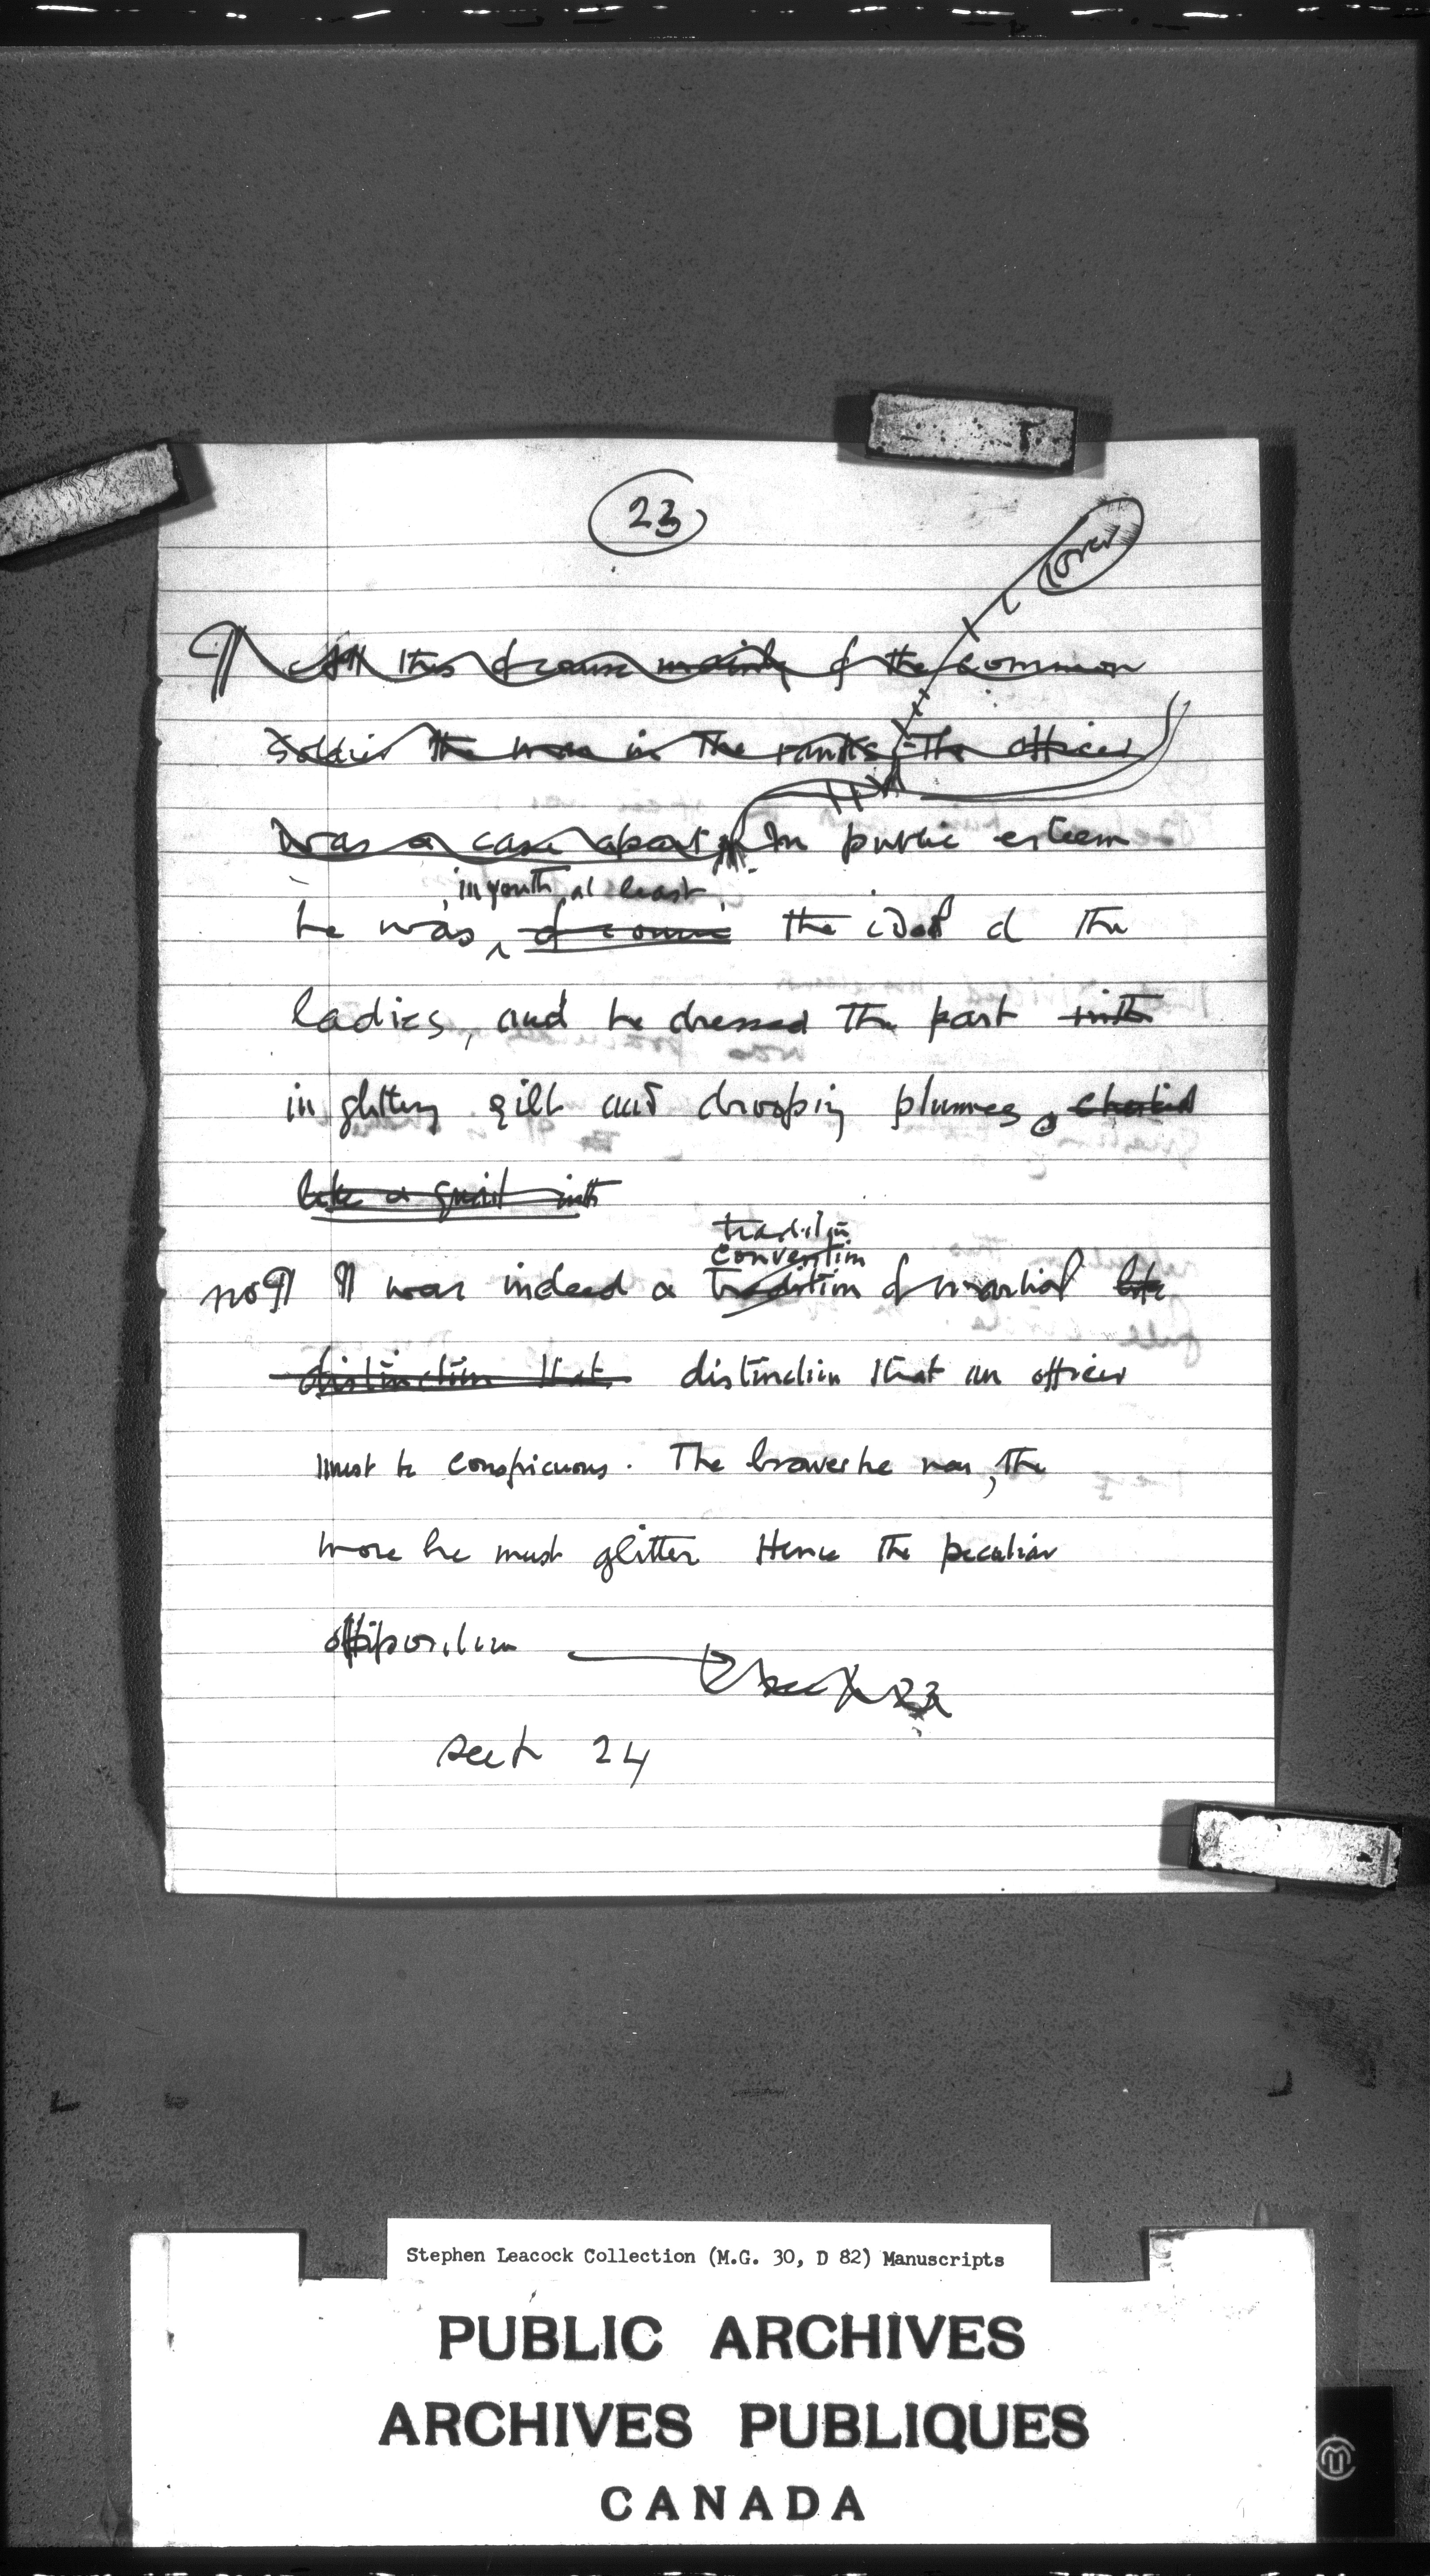 23
cover
¶ All this of course mainly of the common
soldier the man in the ranks. The officer
was a case apart. In public esteem
, in youth at least,
he was of course the idol of the
ladies, and he dressed the part with
in glittery gilt and drooping plumes.
like a with
tradition
convention
no ¶ It was indeed a tradition of martial like
distinction that distinction that an officer
must be conspicuous. The braver he was, the
more he must glitter Hence the peculiar
opposition
sect 23
sect 24
Stephen Leacock Collection (M.G. 30, D 82) Manuscripts
PUBLIC ARCHIVES
ARCHIVES PUBLIQUES
CANADA